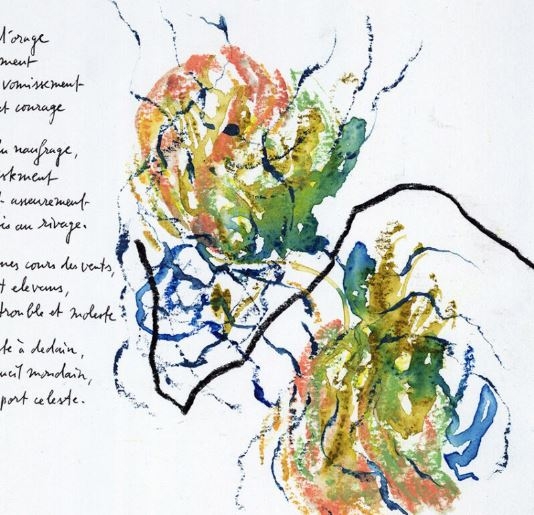 l'orage
ment
vomissement
et courage
naufrage,
ment
asseurement
au rivage.
cours des vents,
t elevans,
trouble et moleste
te à dedain,
mondain,
port celeste.